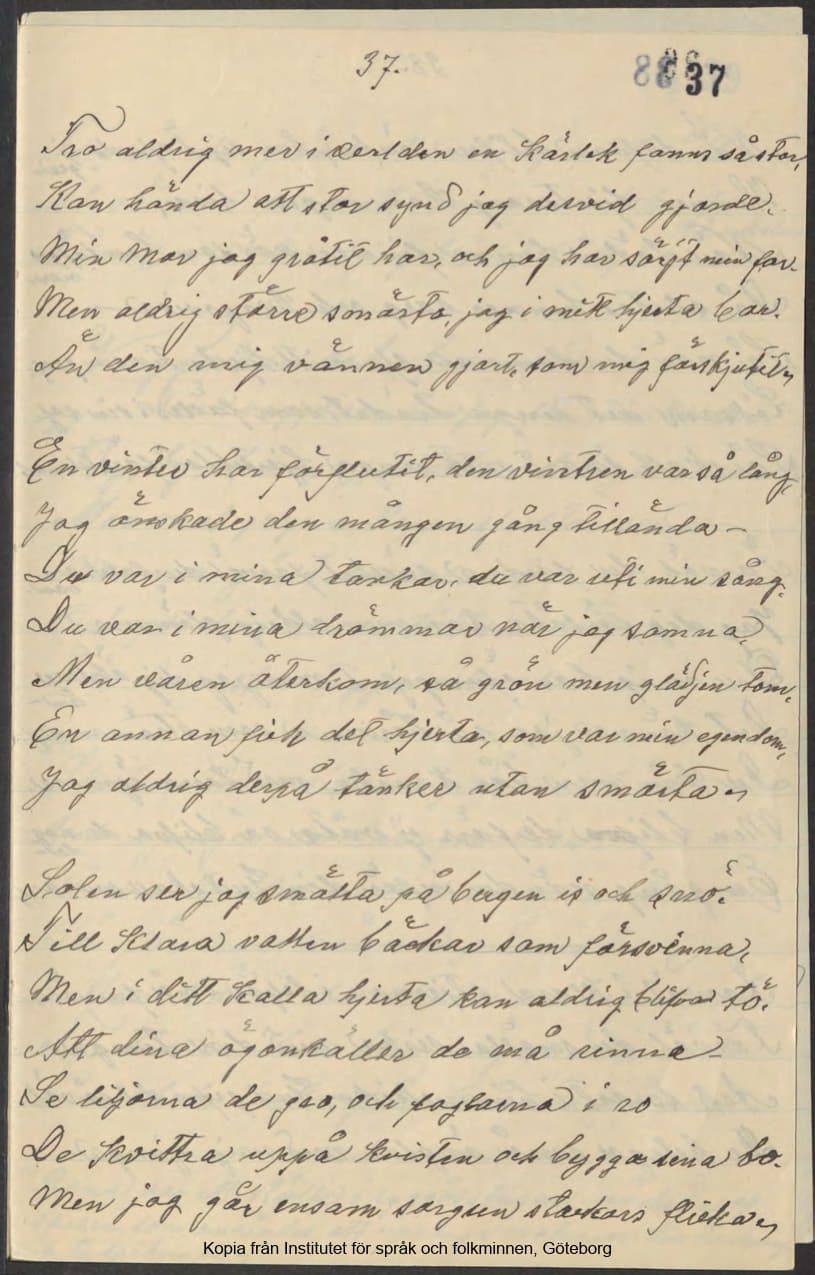 37.
37
Tro aldrig mer i verlden en kärlek fanns så stor,
Kan hända att stor synd jag dervid gjorde.
Min mor jag gråtit har, och jag har sörjt min far.
Men aldrig större smärta, jag i mitt hjerta bar.
Än den mig vännen gjort, som mig förskjutit,
En vinter har förflutit, den vintren var så lång,
Jag önskade den mången gång tillända –
Du var i mina tankar, du var uti min sång,
Du var i mina drömmar när jag somna,
Men våren återkom, så grön men glädjen tom,
En annan fick det hjerta, som var min egendom,
Jag aldrig derpå tänker utan smärta,
Solen ser jag smälta på bergen is och snö.
Till klara vatten bäckar som försvinna,
Men i ditt kalla hjerta kan aldrig blifva tö.
Att dina ögonkällor de må rinna –
Se liljorna de gro, och foglarna i ro
De kvittra uppå kvisten och bygga sina bo.
Men jag går ensam sorgsen stackars flicka,
Kopia från Institutet för språk och folkminnen, Göteborg